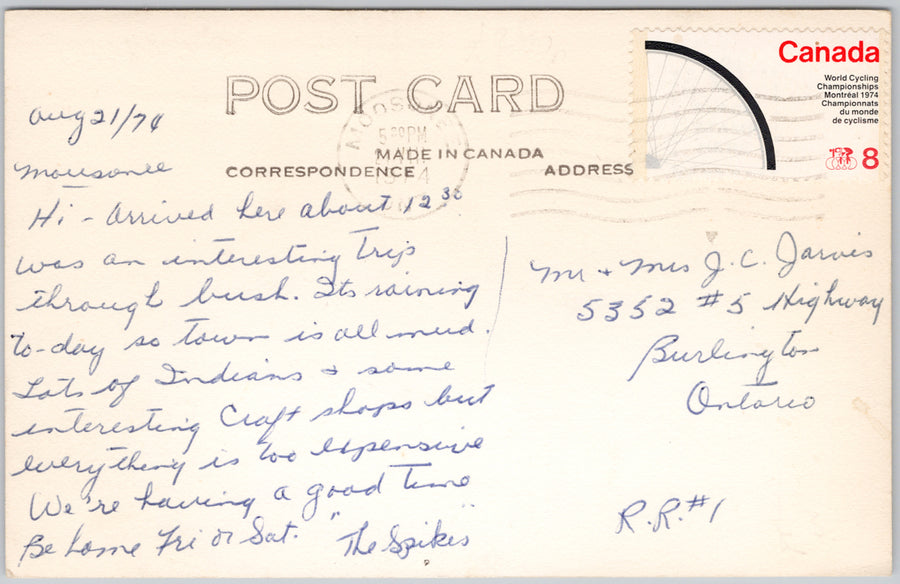 POST CARD
MADE IN CANADA
CORRESPONDENCE
ADDRESS
Canada
World Cycling
Championships
Montréal 1974
Championnats
du monde
de cyclisme
8
MOOSONEE
5 30 PM
Aug 21/74
Mousonee
Hi - Arrived here about 12 30
was an interesting trip
through bush. Its raining
to-day so town is all mud.
Lots of Indians & some
interesting Craft shops but
everything is too expensive
We're having a good time
Be home Fri or Sat. "The Spikes"
Mr + Mrs J.C. Jarvis
5352 #5 Highway
Burlington
Ontario
R.R.#1